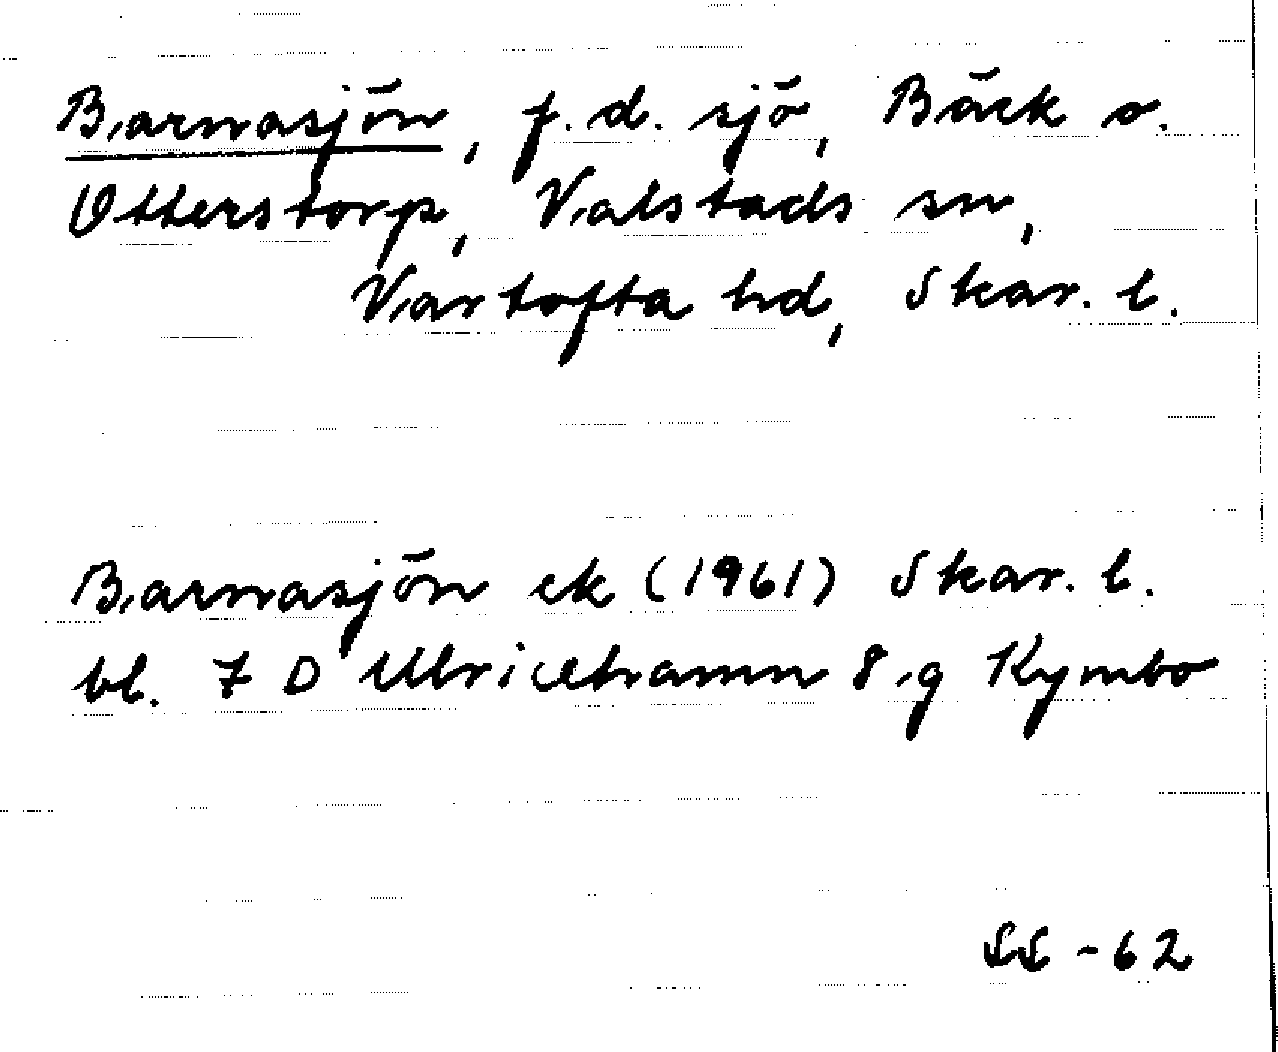 Barnasjön, f.d. sjö, Bäck o.
Otterstorp, Valstads sn,
Vartofta hd, Skar. l.
Barnasjön ek (1961) Skar. l.
bl. 7 D Ulricehamn 8 g Kymbo
SS -62